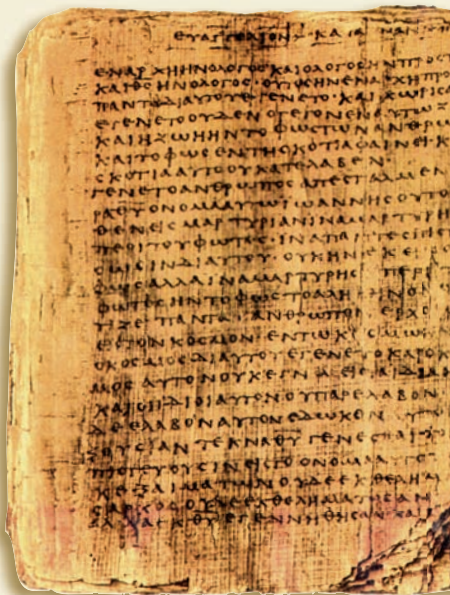 ΕΥΑΓΓΕΛΙΟΝ ΚΑΤΑ
ΕΝΑΡΧΗΗΝΟΛΟΓΟϹΚΑΙΟΛΟΓΟϹΗΝΠΡΟϹ
ΚΑΙΘϹΗΝΟΛΟΓΟϹ·ΟΥΤΟϹΗΝΕΝΑΡΧΗΠΡΟ
ΠΑΝΤΑΔΙΑΥΤΟΥΕΓΕΝΕΤΟ·ΚΑΙΧΩΡΙϹ
ΕΓΕΝΕΤΟΟΥΔΕΝΟΓΕΓΟΝΕΝΕΝΑΥΤΩΖ
ΚΑΙΗΖΩΗΗΝΤΟΦΩϹΤΩΝΑΝΘΡΩ
ΚΑΙΤΟΦΩϹΕΝΤΗϹΚΟΤΙΑΦΑΙΝΕΙ·Κ
ϹΚΟΤΙΑΑΥΤΟΟΥΚΑΤΕΛΑΒΕΝ·
ΓΕΝΕΤΟΑΝΘΡΩΠΟϹΑΠΕϹΤΑΛΜΕΝ
ΡΑΘΥΟΝΟΜΑΑΥΤΩΙΩΑΝΝΗϹΟΥΤΟ
ΘΕΝΕΙϹΜΑΡΤΥΡΙΑΝΙΝΑΜΑΡΤΥΡΗ
ΠΕΡΙΤΟΥΦΩΤΟϹ·ΙΝΑΠΑ
ϹΩϹΙΝΔΙΑΥΤΟΥ·ΟΥΚΗΝΕΚΕΙ
ΦΩϹΑΛΛΑΙΝΑΜΑΡΤΥΡΗϹΗ ΠΕΡΙ
ΦΩΤΟϹΗΝΤΟΦΩϹΤΟΑΛΗΘΙΝΟΝ
ΤΙΖΕΙΠΑΝΤΑΑΝΘΡΩΠΟΝΕΡΧΟ
ΕΙϹΤΟΝΚΟϹΜΟΝΕΝΤΩΚΟϹΜΩ
ΟΚΟϹΜΟϹΔΙΑΥΤΟΥΕΓΕΝΕΤΟΚΑΙΟΚ
ΜΟϹΑΥΤΟΝΟΥΚΕΓΝΩΕΙϹΤΑΙΔΙΑ
ΚΑΙΟΙΙΔΙΟΙΑΥΤΟΝΟΥΠΑΡΕΛΑΒΟΝ
ΔΕΕΛΑΒΟΝΑΥΤΟΝΕΔΩΚΕΝΑΥΤΟ
ΞΟΥϹΙΑΝΤΕΚΝΑΘΥΓΕΝΕϹΘΑΙ
ΠΙϹΤΕΥΟΥϹΙΝΕΙϹΤΟΟΝΟΜΑΑΥΤΟ
ΚΕΞΑΙΜΑΤΩΝΟΥΔΕΕΚΘΕΛΗΜ
ϹΑΡΚΟϹΟΥΔΕΕΚΘΕΛΗΜΑΤΟϹΑΝ
ΑΛΛΑΕΚΘΥΕΓΕΝΝΗΘΗϹΑΝΚΑΙ